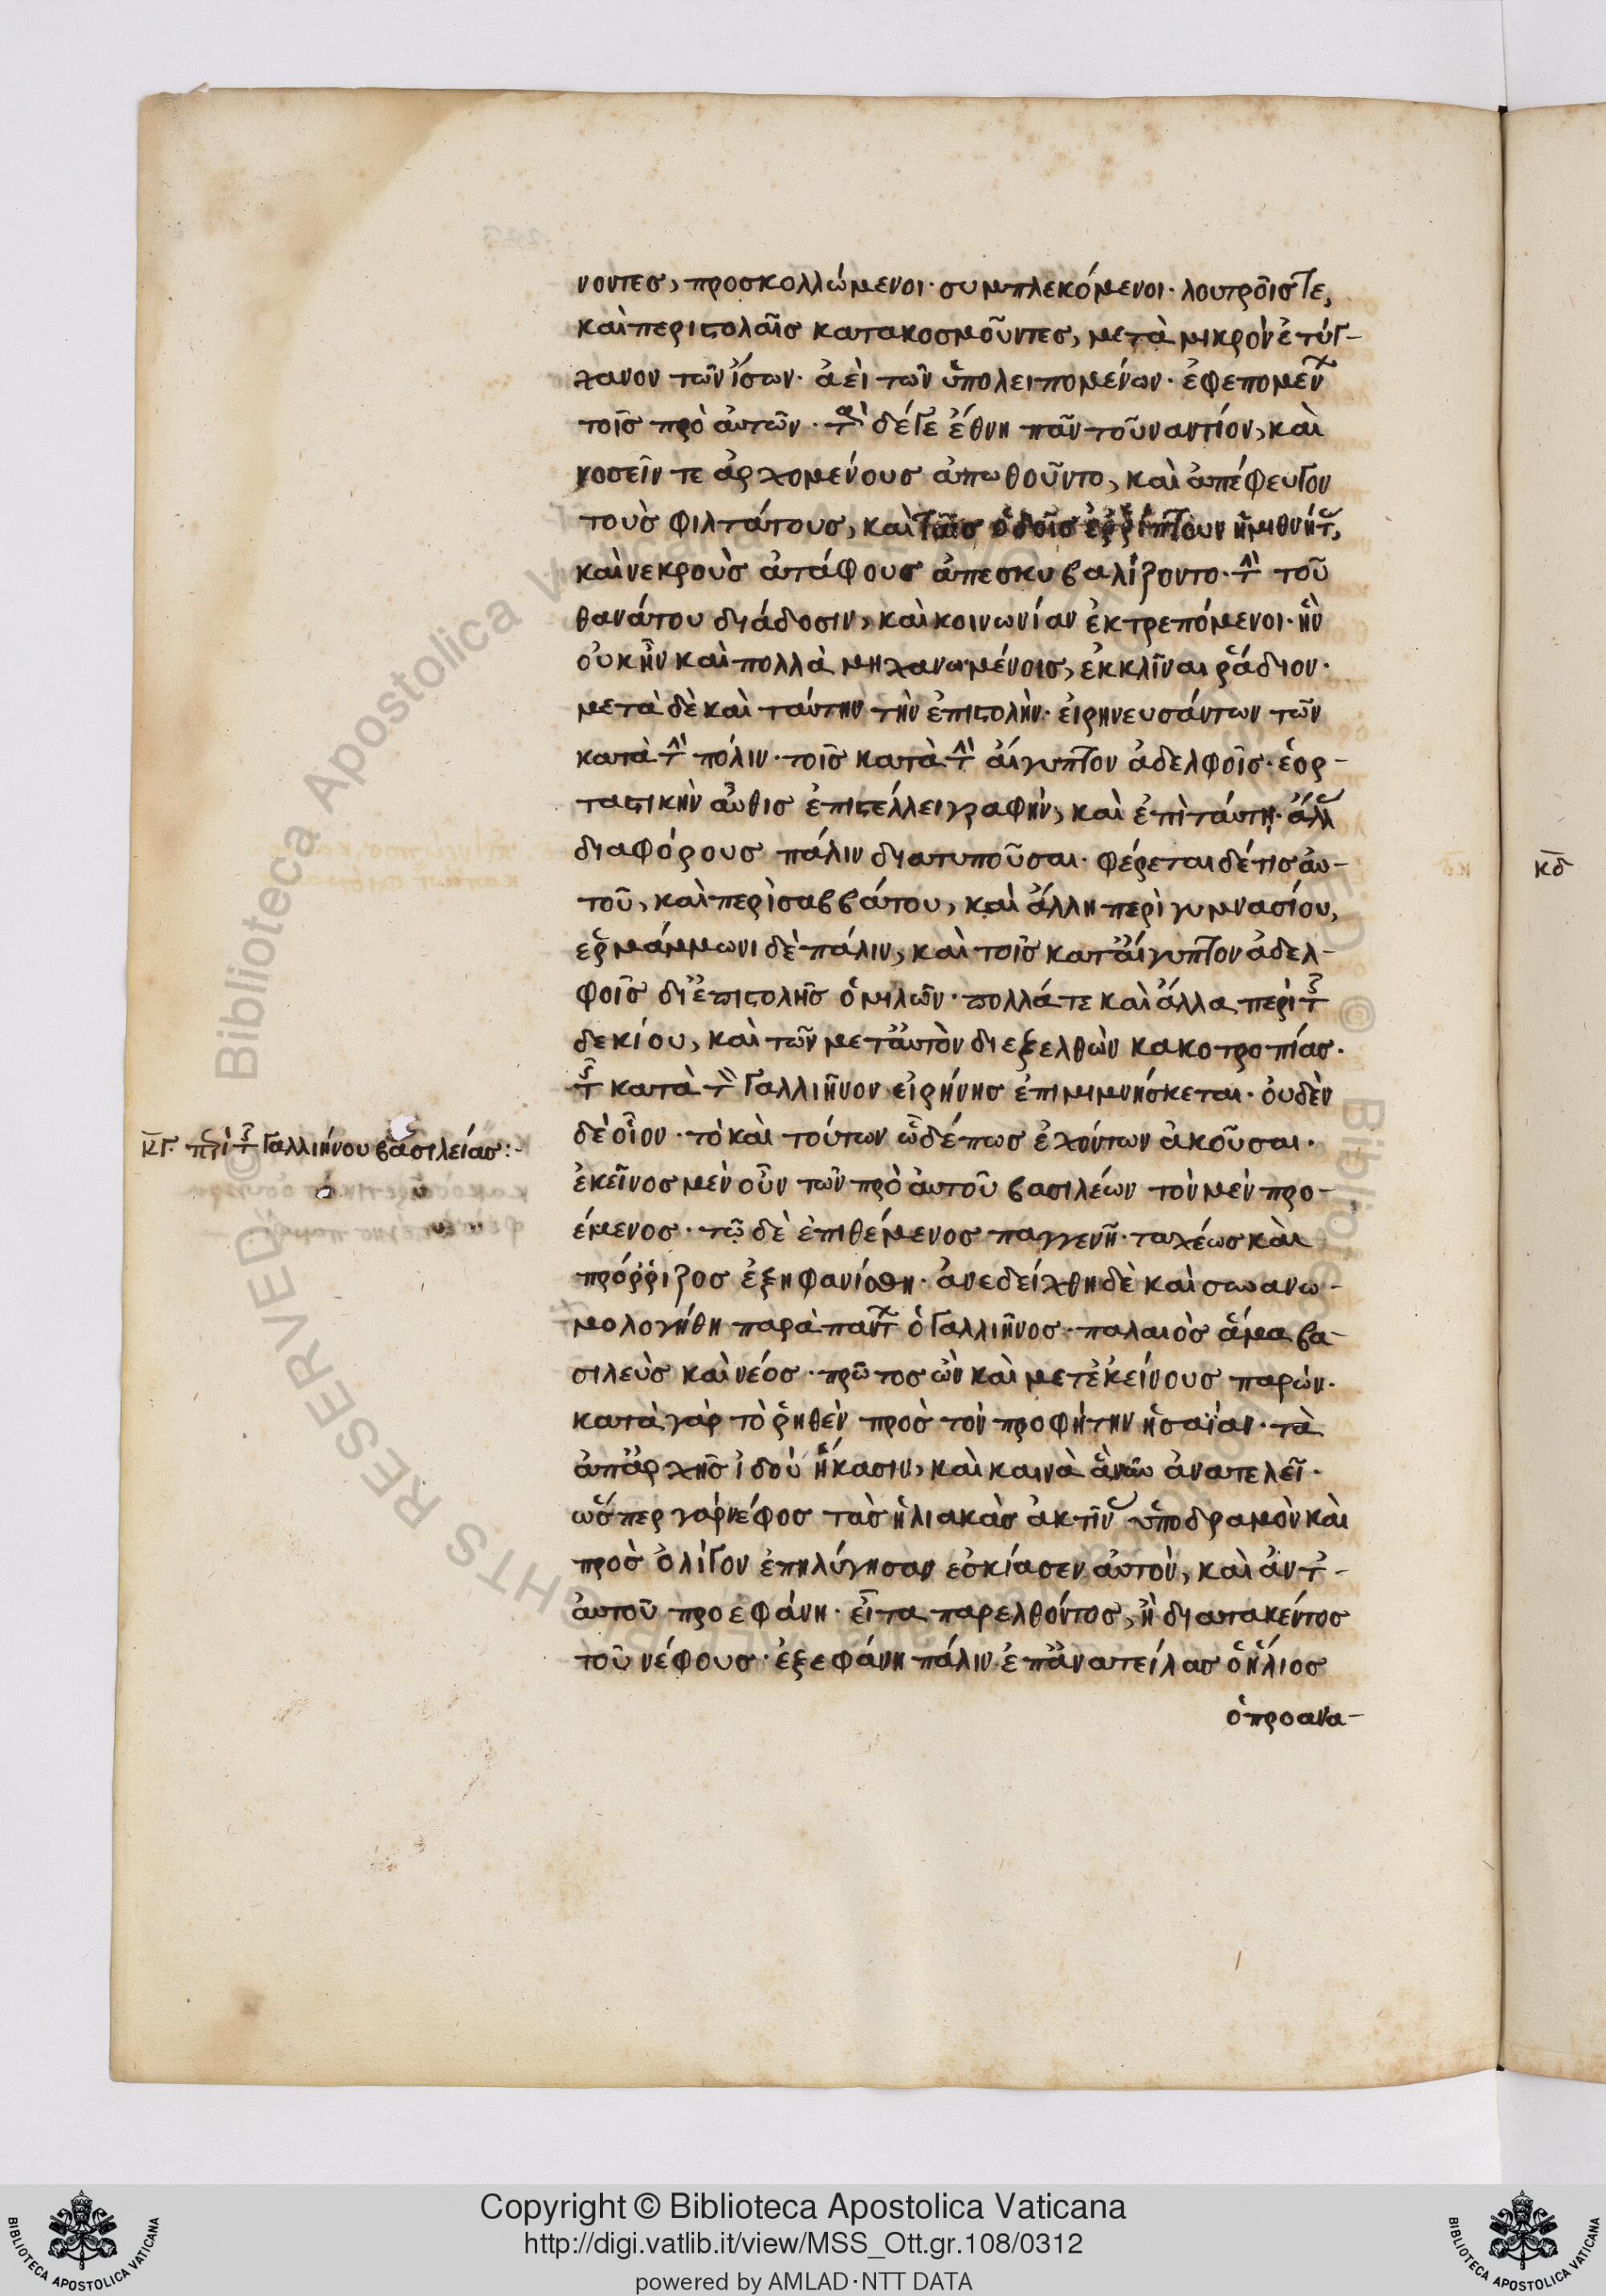 νοντες, προσκολλώμενοι· συμπλεκόμενοι· λουτροῖς τε,
καὶ περιστολαῖς κατακοσμοῦντες, μετὰ μικρὸν ἐτύγ-
χανον τῶν ἴσων· ἀεὶ τῶν ὑπολειπομένων· ἐφεπομένων
τοῖς πρὸ αὐτῶν· τὰ δέ γε ἔθνη πᾶν τοὐναντίον, καὶ
νοσεῖν τε ἀρχομένους ἀπωθοῦντο, καὶ ἀπέφευγον
τοὺς φιλτάτους, καὶ ταῖς ὁδοῖς ἐρρίπτουν ἡμιθνήτας,
καὶ νεκροὺς ἀτάφους ἀπεσκυβαλίζοντο· τὴν τοῦ
θανάτου διάδοσιν, καὶ κοινωνίαν ἐκτρεπόμενοι· ἣν
οὐκ ἦν καὶ πολλὰ μηχανωμένοις, ἐκκλῖναι ῥάδιον·
μετὰ δὲ καὶ ταύτην τὴν ἐπιστολὴν· εἰρηνευσάντων τῶν
κατὰ τὴν πόλιν· τοῖς κατὰ τὴν αἴγυπτον ἀδελφοῖς· ἑορ-
ταστικὴν αὖθις ἐπιστέλλει γραφὴν, καὶ ἐπὶ ταύτῃ· ἄλλας
διαφόρους πάλιν διατυποῦσαι· φέρεται δέ τις αὐ-
τοῦ, καὶ περὶ σαββάτου, καὶ ἄλλη περὶ γυμνασίου,
ἑρμάμμωνι δὲ πάλιν, καὶ τοῖς κατ' αἴγυπτον ἀδελ-
φοῖς δι' ἐπιστολῆς ὁμιλῶν· πολλά τε καὶ ἄλλα περὶ τῆς
δεκίου, καὶ τῶν μετ' αὐτὸν διεξελθὼν κακοτροπίας·
τῆς κατὰ τὸν Γαλλιῆνον εἰρήνης ἐπιμιμνήσκεται· οὐδὲν
δὲ οἷον· τὸ καὶ τούτων ὧδέ πως ἐχόντων ἀκοῦσαι·
κγ· περὶ τῆς Γαλλιήνου βασιλείας:-
ἐκεῖνος μὲν οὖν τῶν πρὸ αὐτοῦ βασιλέων τὸν μὲν προ-
έμενος· τῷ δὲ ἐπιθέμενος παγγενῆ· ταχέως καὶ
πρόρριζος ἐξηφανίσθη· ἀνεδείχθη δὲ καὶ συνανω-
μολογήθη παρὰ πάντων ὁ Γαλλιῆνος· παλαιὸς ἅμα βα-
σιλεὺς καὶ νέος· πρῶτος ὢν καὶ μετ' ἐκείνους παρών·
κατὰ γὰρ τὸ ῥηθὲν πρὸς τὸν προφήτην ἡσαΐαν· τὰ
ἀπ' ἀρχῆς ἰδοὺ ἥκασιν, καὶ καινὰ ἃ νῦν ἀνατελεῖ·
ὥσπερ γὰρ νέφος τὰς ἡλιακὰς ἀκτῖνας ὑποδραμὸν καὶ
πρὸς ὀλίγον ἐπηλύγησαν ἐσκίασεν αὐτὸν, καὶ ἀντ'-
αὐτοῦ προεφάνη· εἶτα παρελθόντος, ἢ διατακέντος
τοῦ νέφους· ἐξεφάνη πάλιν ἐπανατείλας ὁ ἥλιος
ὁ προανα-
κδ
Copyright © Biblioteca Apostolica Vaticana
http://digi.vatlib.it/view/MSS_Ott.gr.108/0312
powered by AMLAD·NTT DATA